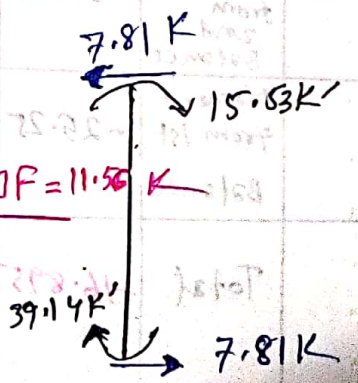 7.81 K
15.53K'
F = 11.56 K
39.14K'
7.81K